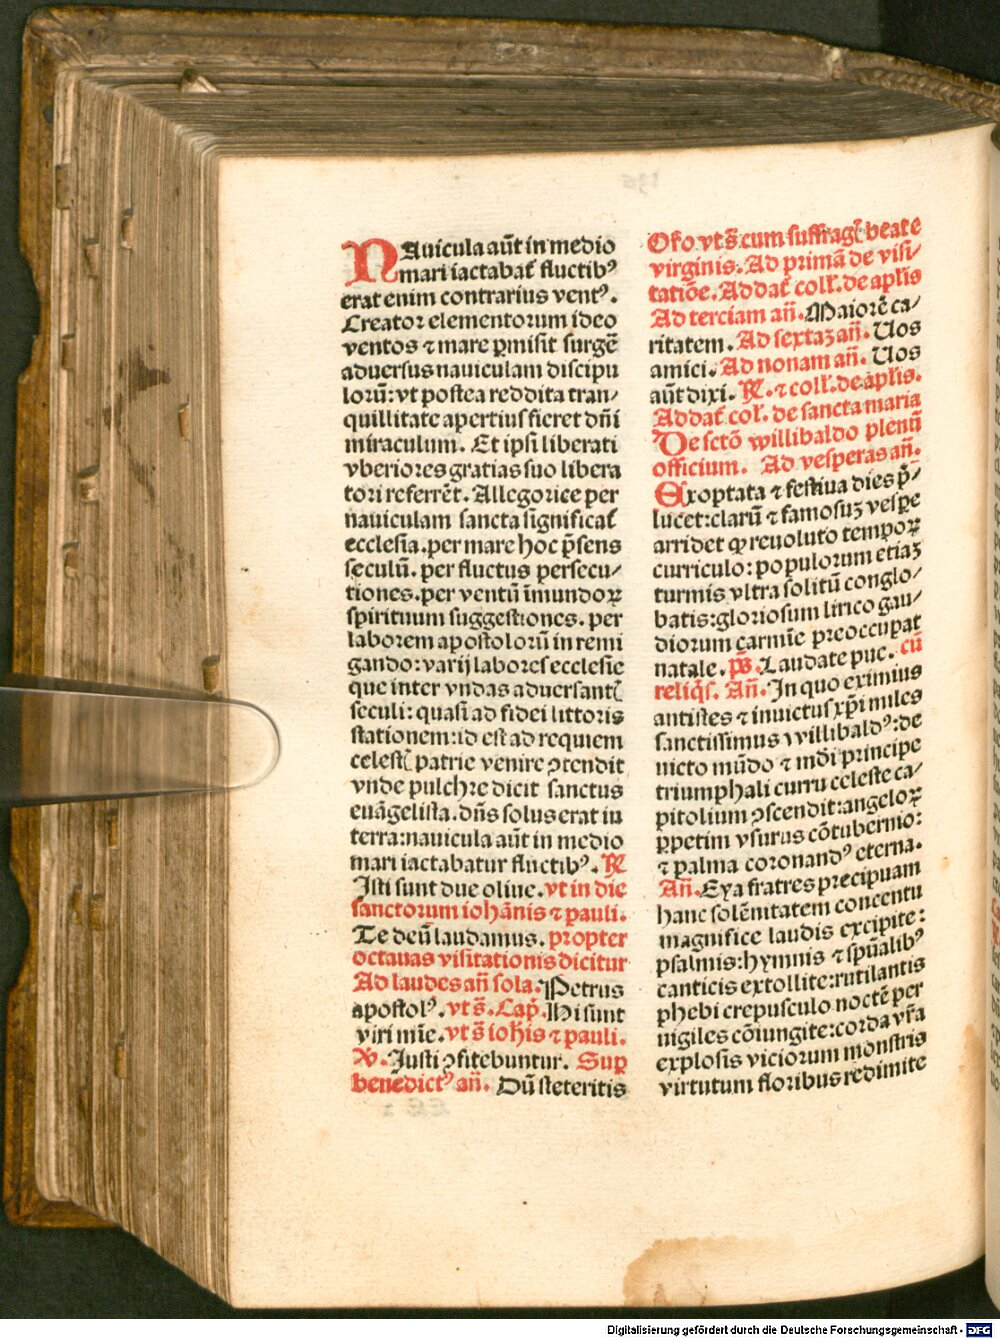 NAuicula aūt in medio
mari iactabat᷑ fluctibꝰ
erat enim contrarius ventꝰ.
Creator elementorum ideo
ventos ⁊ mare ꝑmisit surgē
aduersus nauiculam discipu
lorū: vt postea reddita tran⸗
quillitate apertius fieret dn̄i
miraculum. Et ipsi liberati
vberiores gratias suo libera
tori referrēt. Allegorice per
nauiculam sancta significat᷑
ecclesia. per mare hoc p̄sens
seculū. per fluctus persecu⸗
tiones. per ventū īmundoꝝ
spirituum suggestiones. per
laborem apostolorū in remi
gando: varij labores ecclesie
que inter vndas aduersant᷑
seculi: quasi ad fidei littoris
stationem: id est ad requiem
celest᷑ patrie venire ꝯtendit
vnde pulchre dicit sanctus
euāgelista. dn̄s solus erat in
terra: nauicula aūt in medio
mari iactabatur fluctibꝰ. ℟
Isti sunt due oliue. vt in die
sanctorum iohānis ⁊ pauli.
Te deū laudamus. propter
octauas visitationis dicitur
Ad laudes an̄ sola. Petrus
apostolꝰ. vt s̄. Cap̄. Hi sunt
viri mīe. vt s̄ ioh̄is ⁊ pauli.
℣. Justi ꝯfitebuntur. Sup
benedictꝰ an̄. Dū steteritis
Oro vt s̄ cum suffrag᷑ beate
virginis. Ad primā de visi⸗
tatiōe. Ad dat᷑ coll᷑. de apl̄is
Ad terciam an̄. Maiorē ca⸗
ritatem. Ad sextaꝫ an̄. Uos
amici. Ad nonam an̄. Uos
aūt dixi. ℟. ⁊ coll᷑. de apl̄is.
Ad dat᷑ col᷑. de sancta maria
De sctō willibaldo plenū
officium. Ad vesperas an̄.
EXoptata ⁊ festiua dies p̄⸗
lucet: clarū ⁊ famosuꝫ vespe
arridet ꝙ reuoluto tempoꝝ
curriculo: populorum etiaꝫ
turmis vltra solitū conglo⸗
batis: gloriosum lirico gau⸗
diorum carmīe preoccupat
natale. p̄s. Laudate pue. cū
reliq̄s. An̄. In quo eximius
antistes ⁊ inuictus xp̄i miles
sanctissimus willibaldꝰ: de
victo mūdo ⁊ mūdi principe
triumphali curru celeste ca⸗
pitolium ꝯscendit: angeloꝝ
ꝑpetim vsurus cōtubernio:
⁊ palma coronandꝰ eterna.
An̄. Eya fratres precipuam
hanc solēnitatem concentu
magnifice laudis excipite:
psalmis: hymnis ⁊ sp̄ualibꝰ
canticis extollite: rutilantis
phebi crepusculo noctē per
uigiles cōiungite: corda vr̄a
explosis viciorum monstris
virtutum floribus redimite
Digitalisierung gefördert durch die Deutsche Forschungsgemeinschaft - DFG